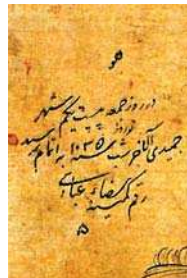 هو
در روز جمعه بیست یکم شهر
جمیدی الآخر سنه ۱۰۳۵ به اتمام رسید
رقم کمینه رضاء عباسی